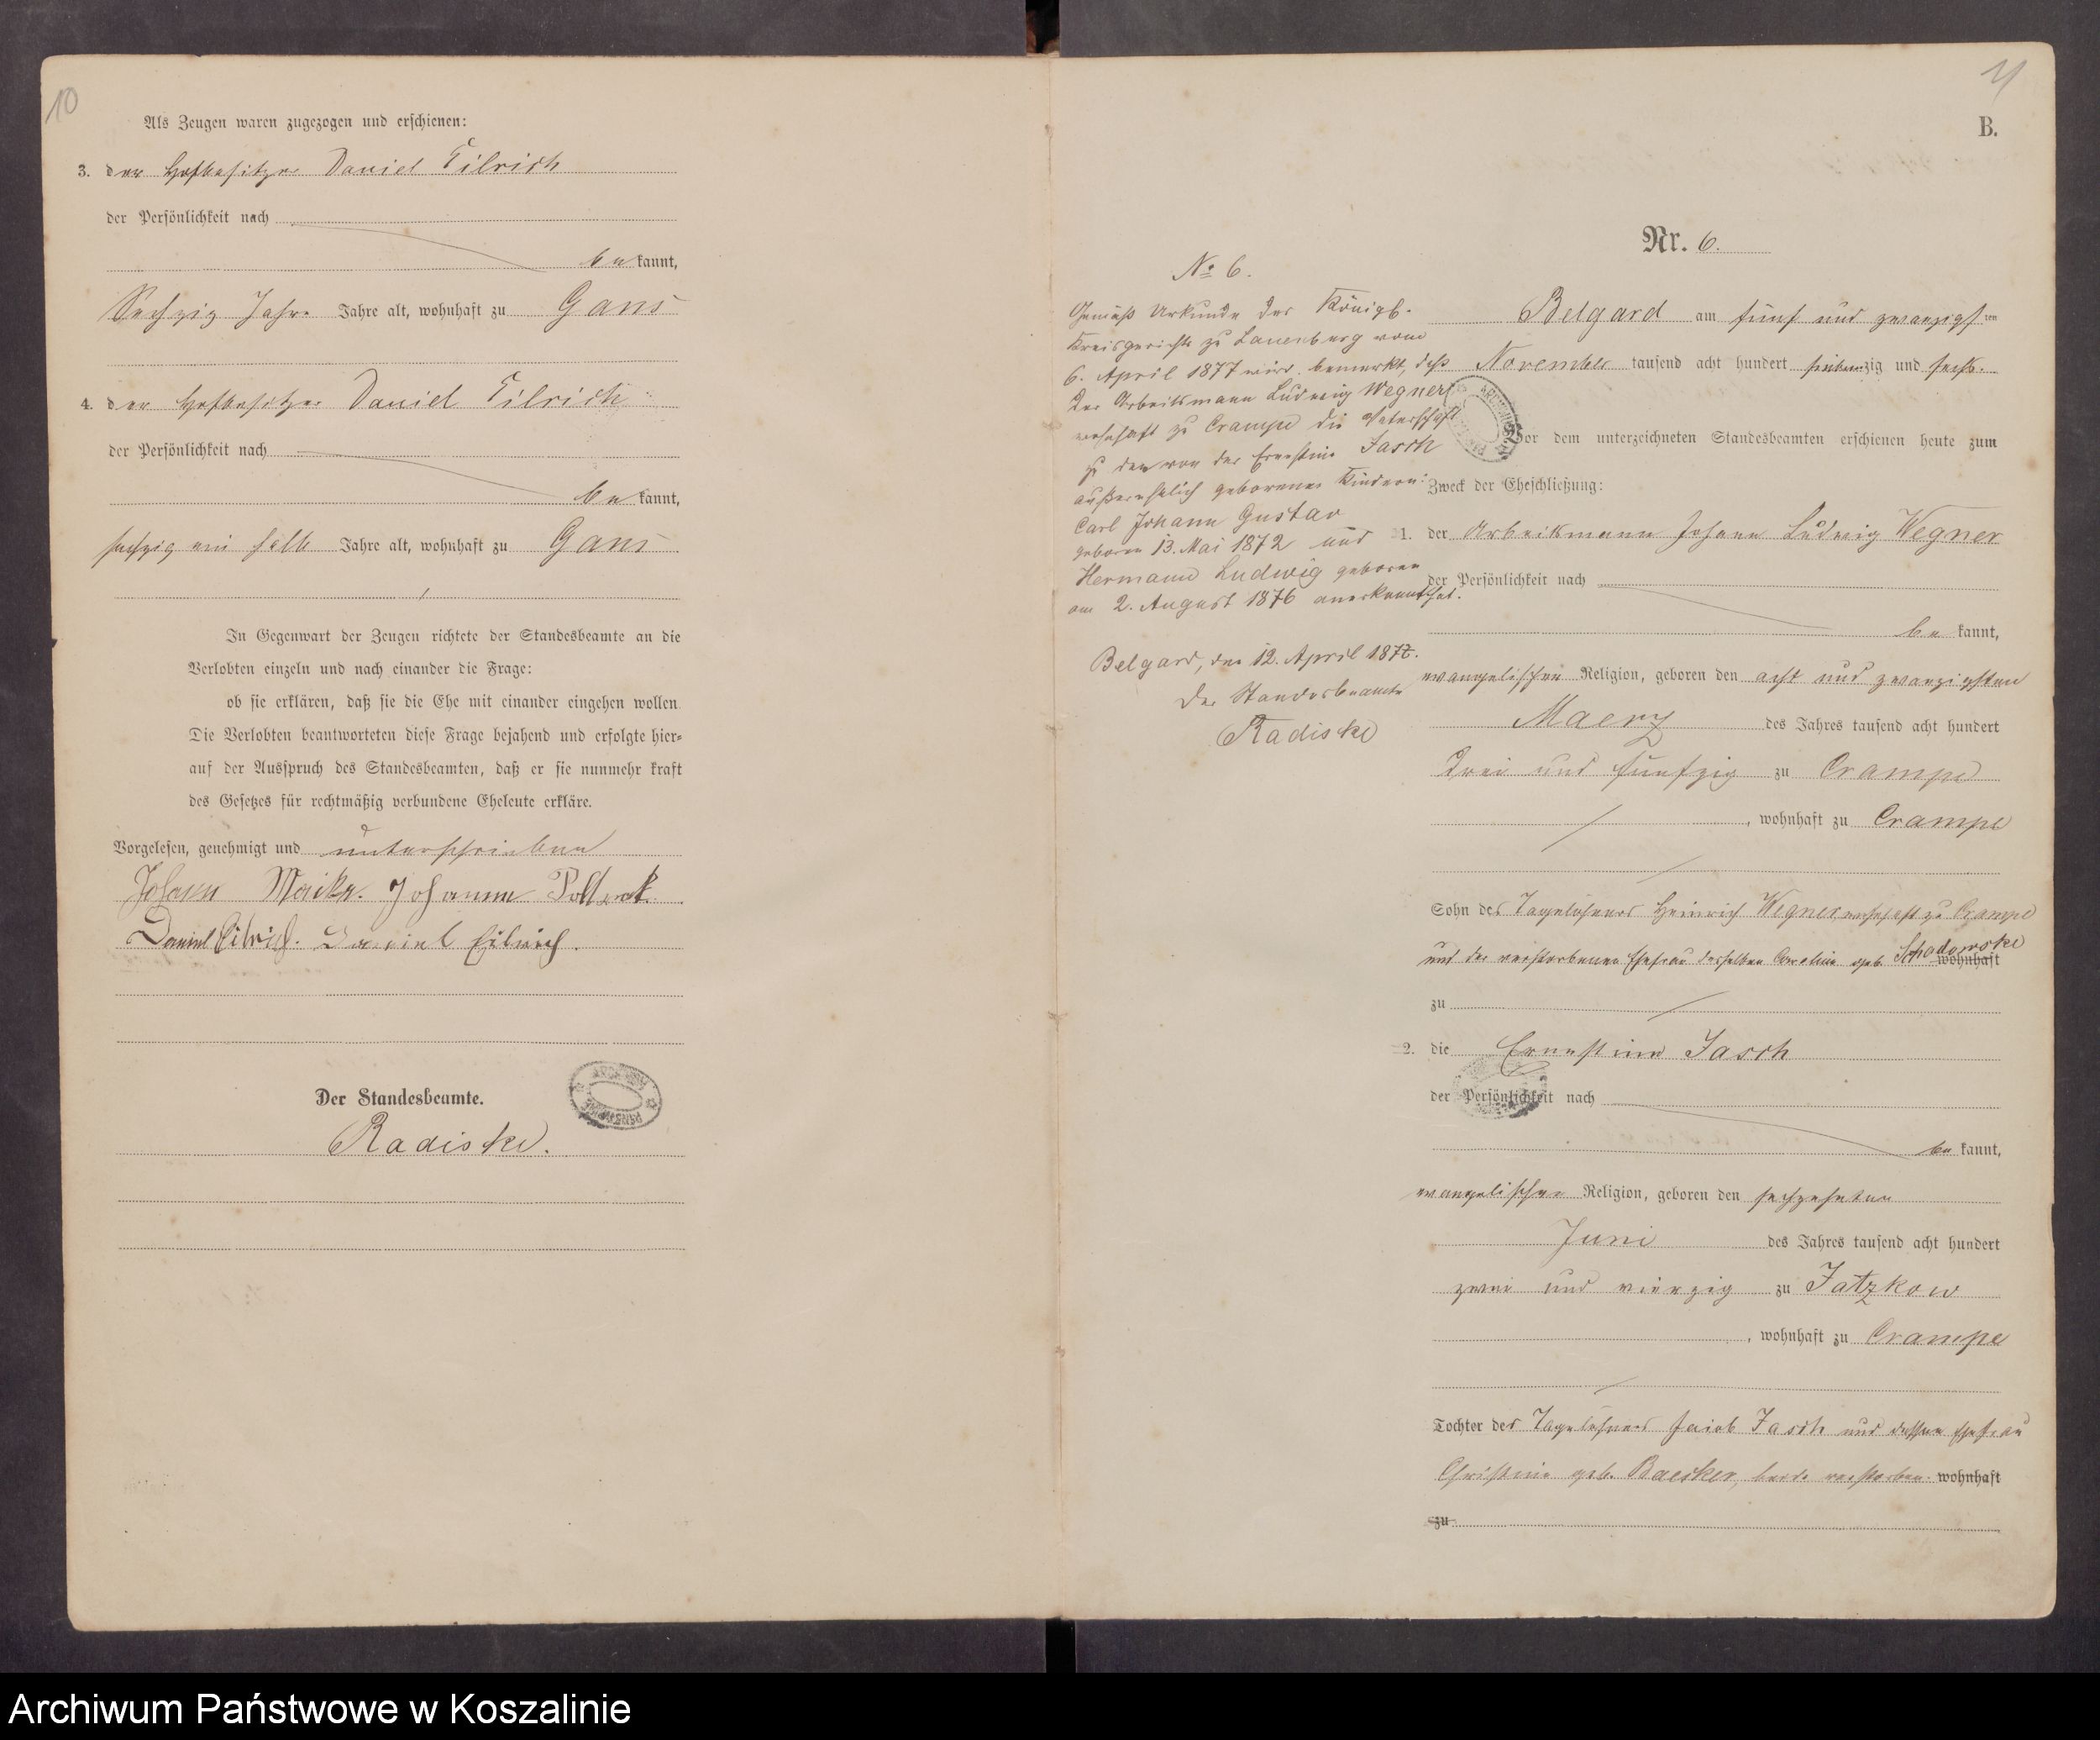 10
Als Zeugen waren zugezogen und erschienen:
3. der Hofbesitzer Daniel
der Persönlichkeit nach
be kannt,
Sechzig Jahre Jahre alt, wohnhaft zu Gans
4. der Hofbesitzer Daniel
der Persönlichkeit nach
be kannt,
sechzig ein halb Jahre alt, wohnhaft zu Gans
In Gegenwart der Zeugen richtete der Standesbeamte an die
Verlobten einzeln und nach einander die Frage:
ob sie erklären, daß sie die Ehe mit einander eingehen wollen
Die Verlobten beantworteten diese Frage bejahend und erfolgte hier=
auf der Ausspruch des Standesbeamten, daß er sie nunmehr kraft
des Gesetzes für rechtmäßig verbundene Eheleute erkläre.
Vorgelesen, genehmigt und unterschrieben
Johann Johanne
Daniel Daniel
Der Standesbeamte.
Radiske.
11
B.
Nr. 6.
Belgard am fünf und zwanzigsten
November tausend acht hundert siebenzig und sechs.
Vor dem unterzeichneten Standesbeamten erschienen heute zum
Zweck der Eheschließung:
1. der Arbeitsmann Johann Ludwig Wegner
der Persönlichkeit nach
be kannt,
evangelischen Religion, geboren den acht und zwanzigsten
Maerz des Jahres tausend acht hundert
drei und fünfzig zu Crampe
, wohnhaft zu Crampe
Sohn des Tagelöhners Heinrich Wegner, wohnhaft zu Crampe
und der verstorbenen Ehefrau desselben Caroline geb. Schadowske wohnhaft
zu
2. die Ernestine Jasch
der Persönlichkeit nach
be kannt,
evangelischer Religion, geboren den sechzehnten
Juni des Jahres tausend acht hundert
zwei und vierzig zu Jatzkow
, wohnhaft zu Crampe
Tochter des Tagelöhners Jacob Jasch und dessen Ehefrau
Christine geb. Baesker, beide verstorben wohnhaft
zu
No 6.
Gemäß Urkunde des Königl.
Kreisgerichts zu Lauenburg vom
6. April 1877 wird bemerkt, daß
der Arbeitsmann Ludwig Wegner
wohnhaft zu Crampe die Vaterschaft
zu den von der Ernestine Jasch
außerehelich geborenen Kindern:
Carl Johann Gustav
geboren 13. Mai 1872 und
Hermann Ludwig geboren
am 2. August 1876 anerkannt hat.
Belgard, den 12. April 1877.
Der Standesbeamte
Radiske
Archiwum Państwowe w Koszalinie